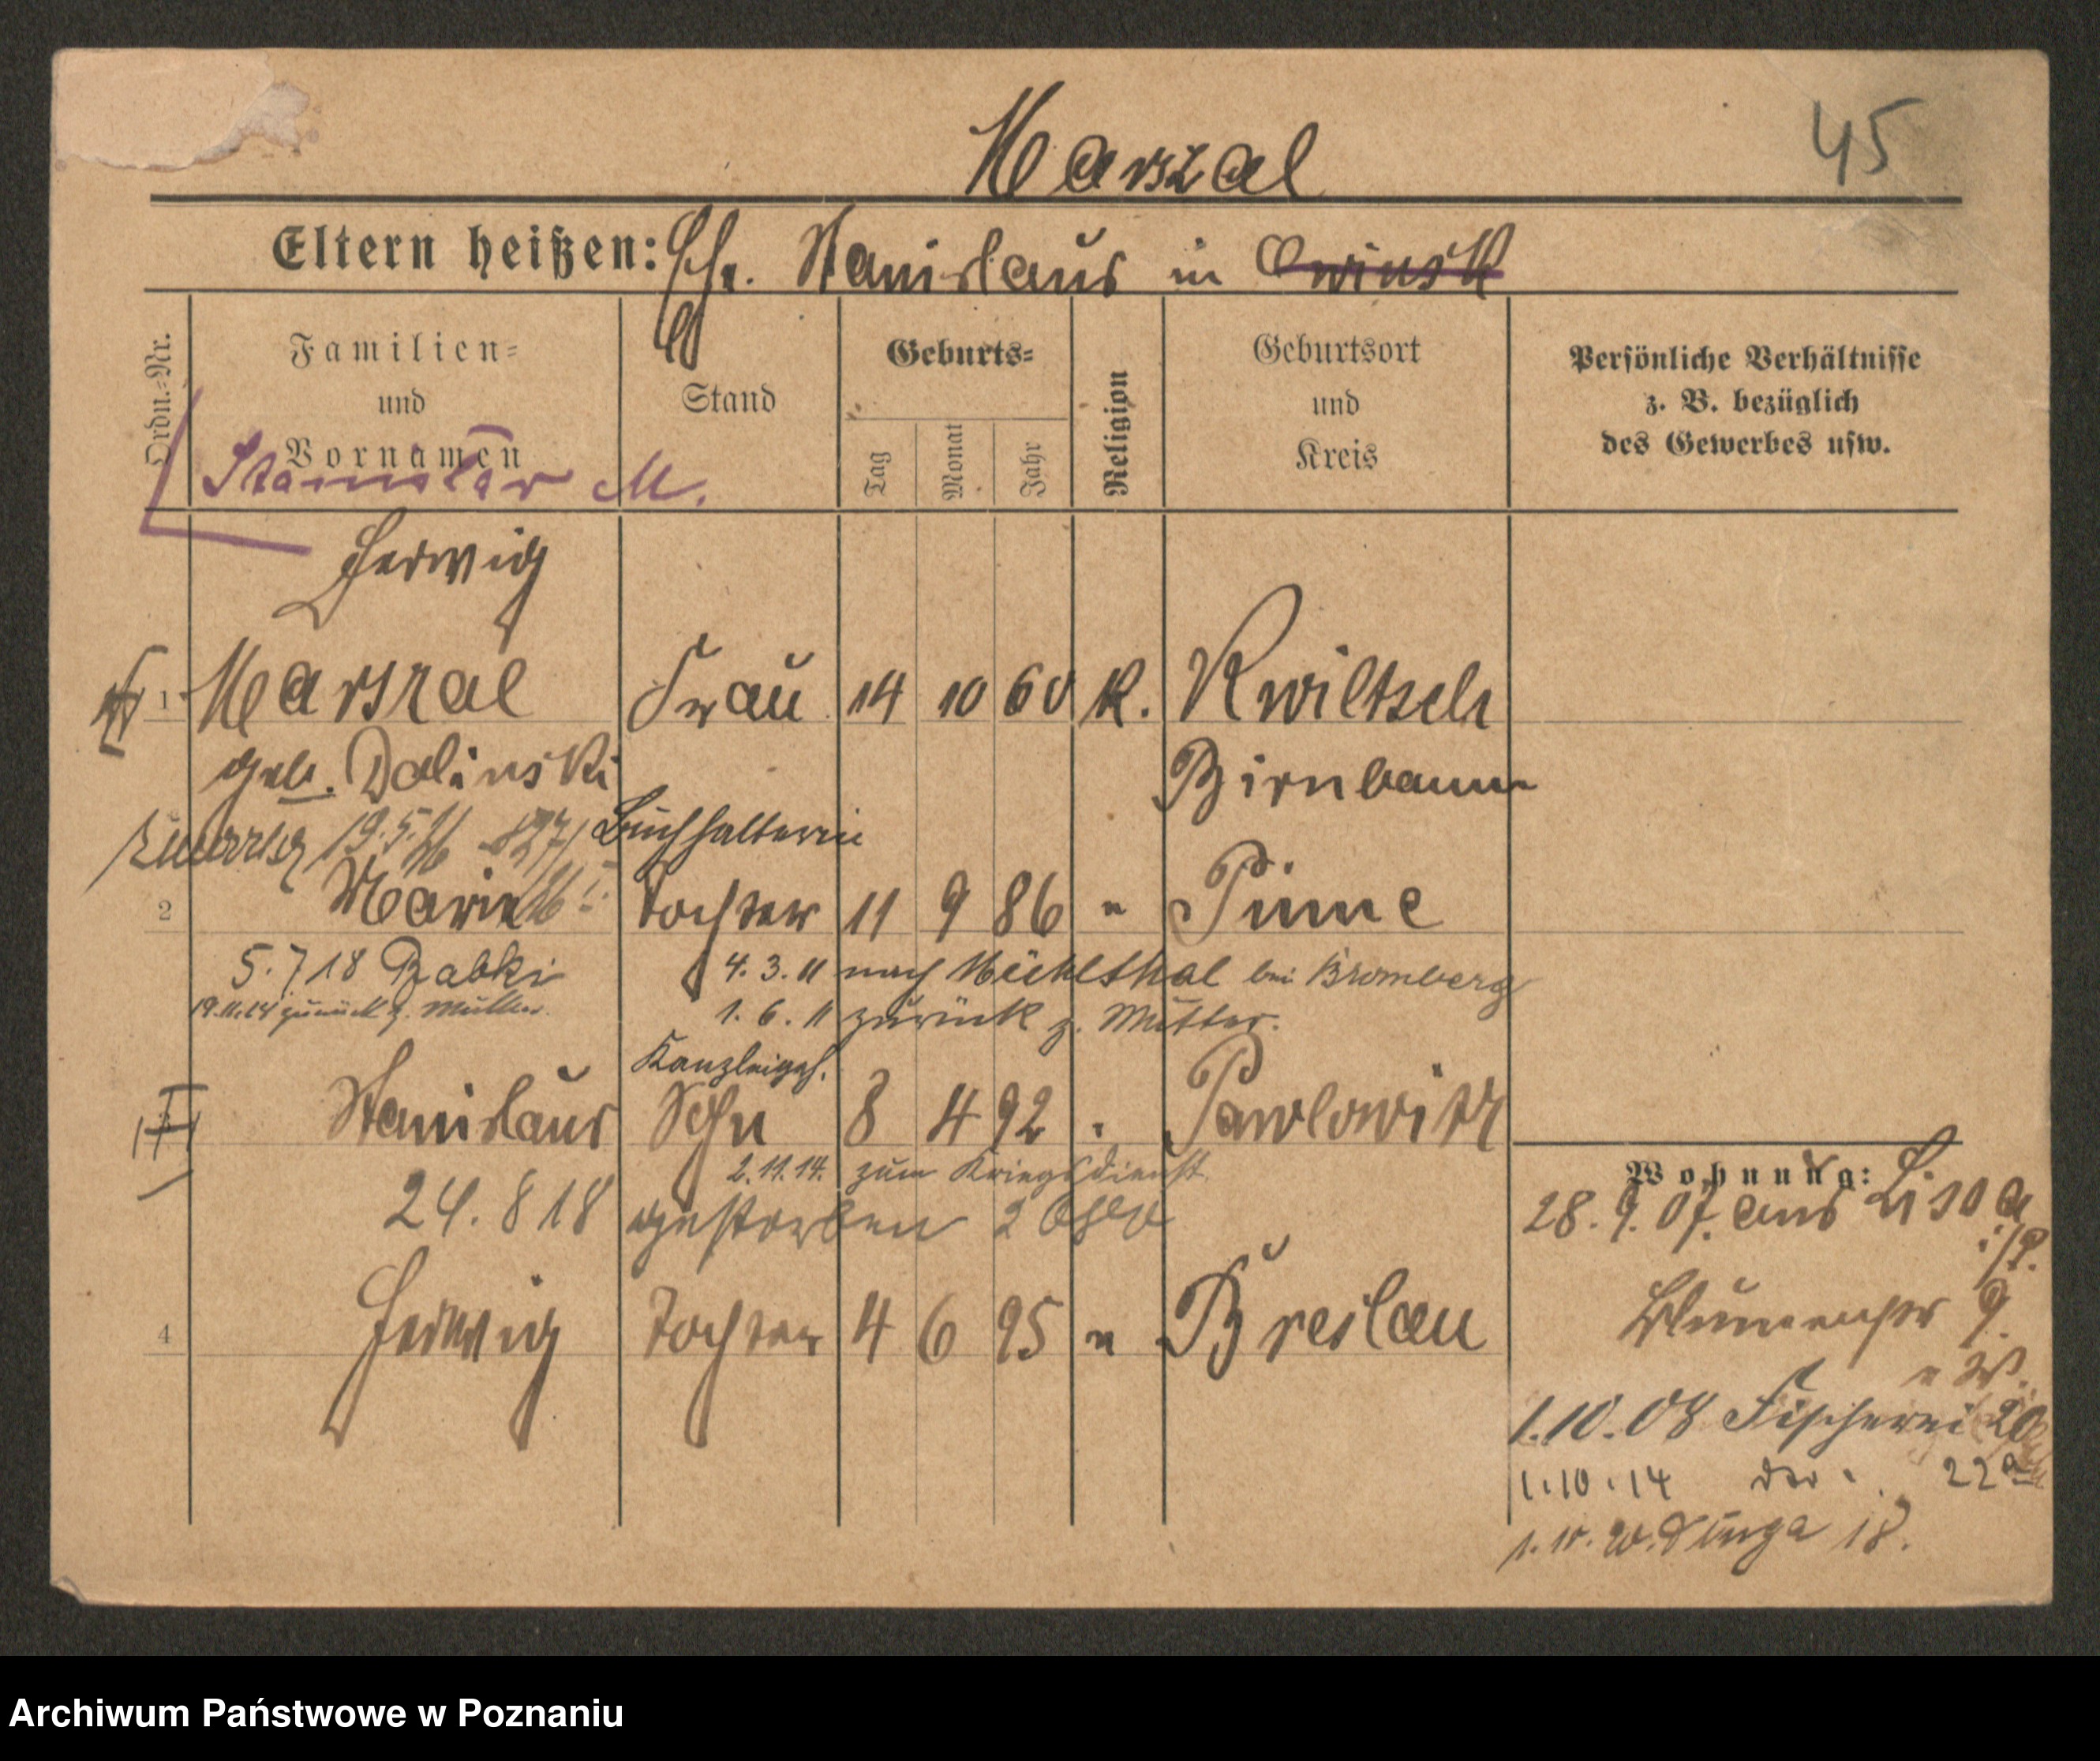 45
Marszal
Eltern heißen: Ehr. Stanislaus in Owinsk
Ordn.-Nr.
Familien=
und
Vornamen
Stand
Geburts=
Tag
Monat
Jahr
Religion
Geburtsort
und
Kreis
Persönliche Verhältnisse
z. B. bezüglich
des Gewerbes usw.
Stanislaw M.
Hedwig
1 Marszal Frau 14 10 60 K. Kwiltsch
geb. Dolinski Birnbaum
19.5.16 Buchhalterin
2 Marie Tochter 11 9 86 " Pinne
5.7 18 Rabki 4. 3. 11 nach Mühlthal bei Bromberg
19.11.14 zurück z. Mutter. 1. 6. 11 zurück z. Mutter.
Kanzleigeh.
Stanislaus Sohn 8 4 92 " Pawlowitz
2.11.14. zum Kriegsdienst
24. 8 18 gestorben
4 Hedwig Tochter 4 6 95 " Breslau
Wohnung:
28. 9. 07. aus Lissa
i/P.
Blumenstr 9.
1.10.08 Fischerei 20
1.10.14 22a
Dluga 18.